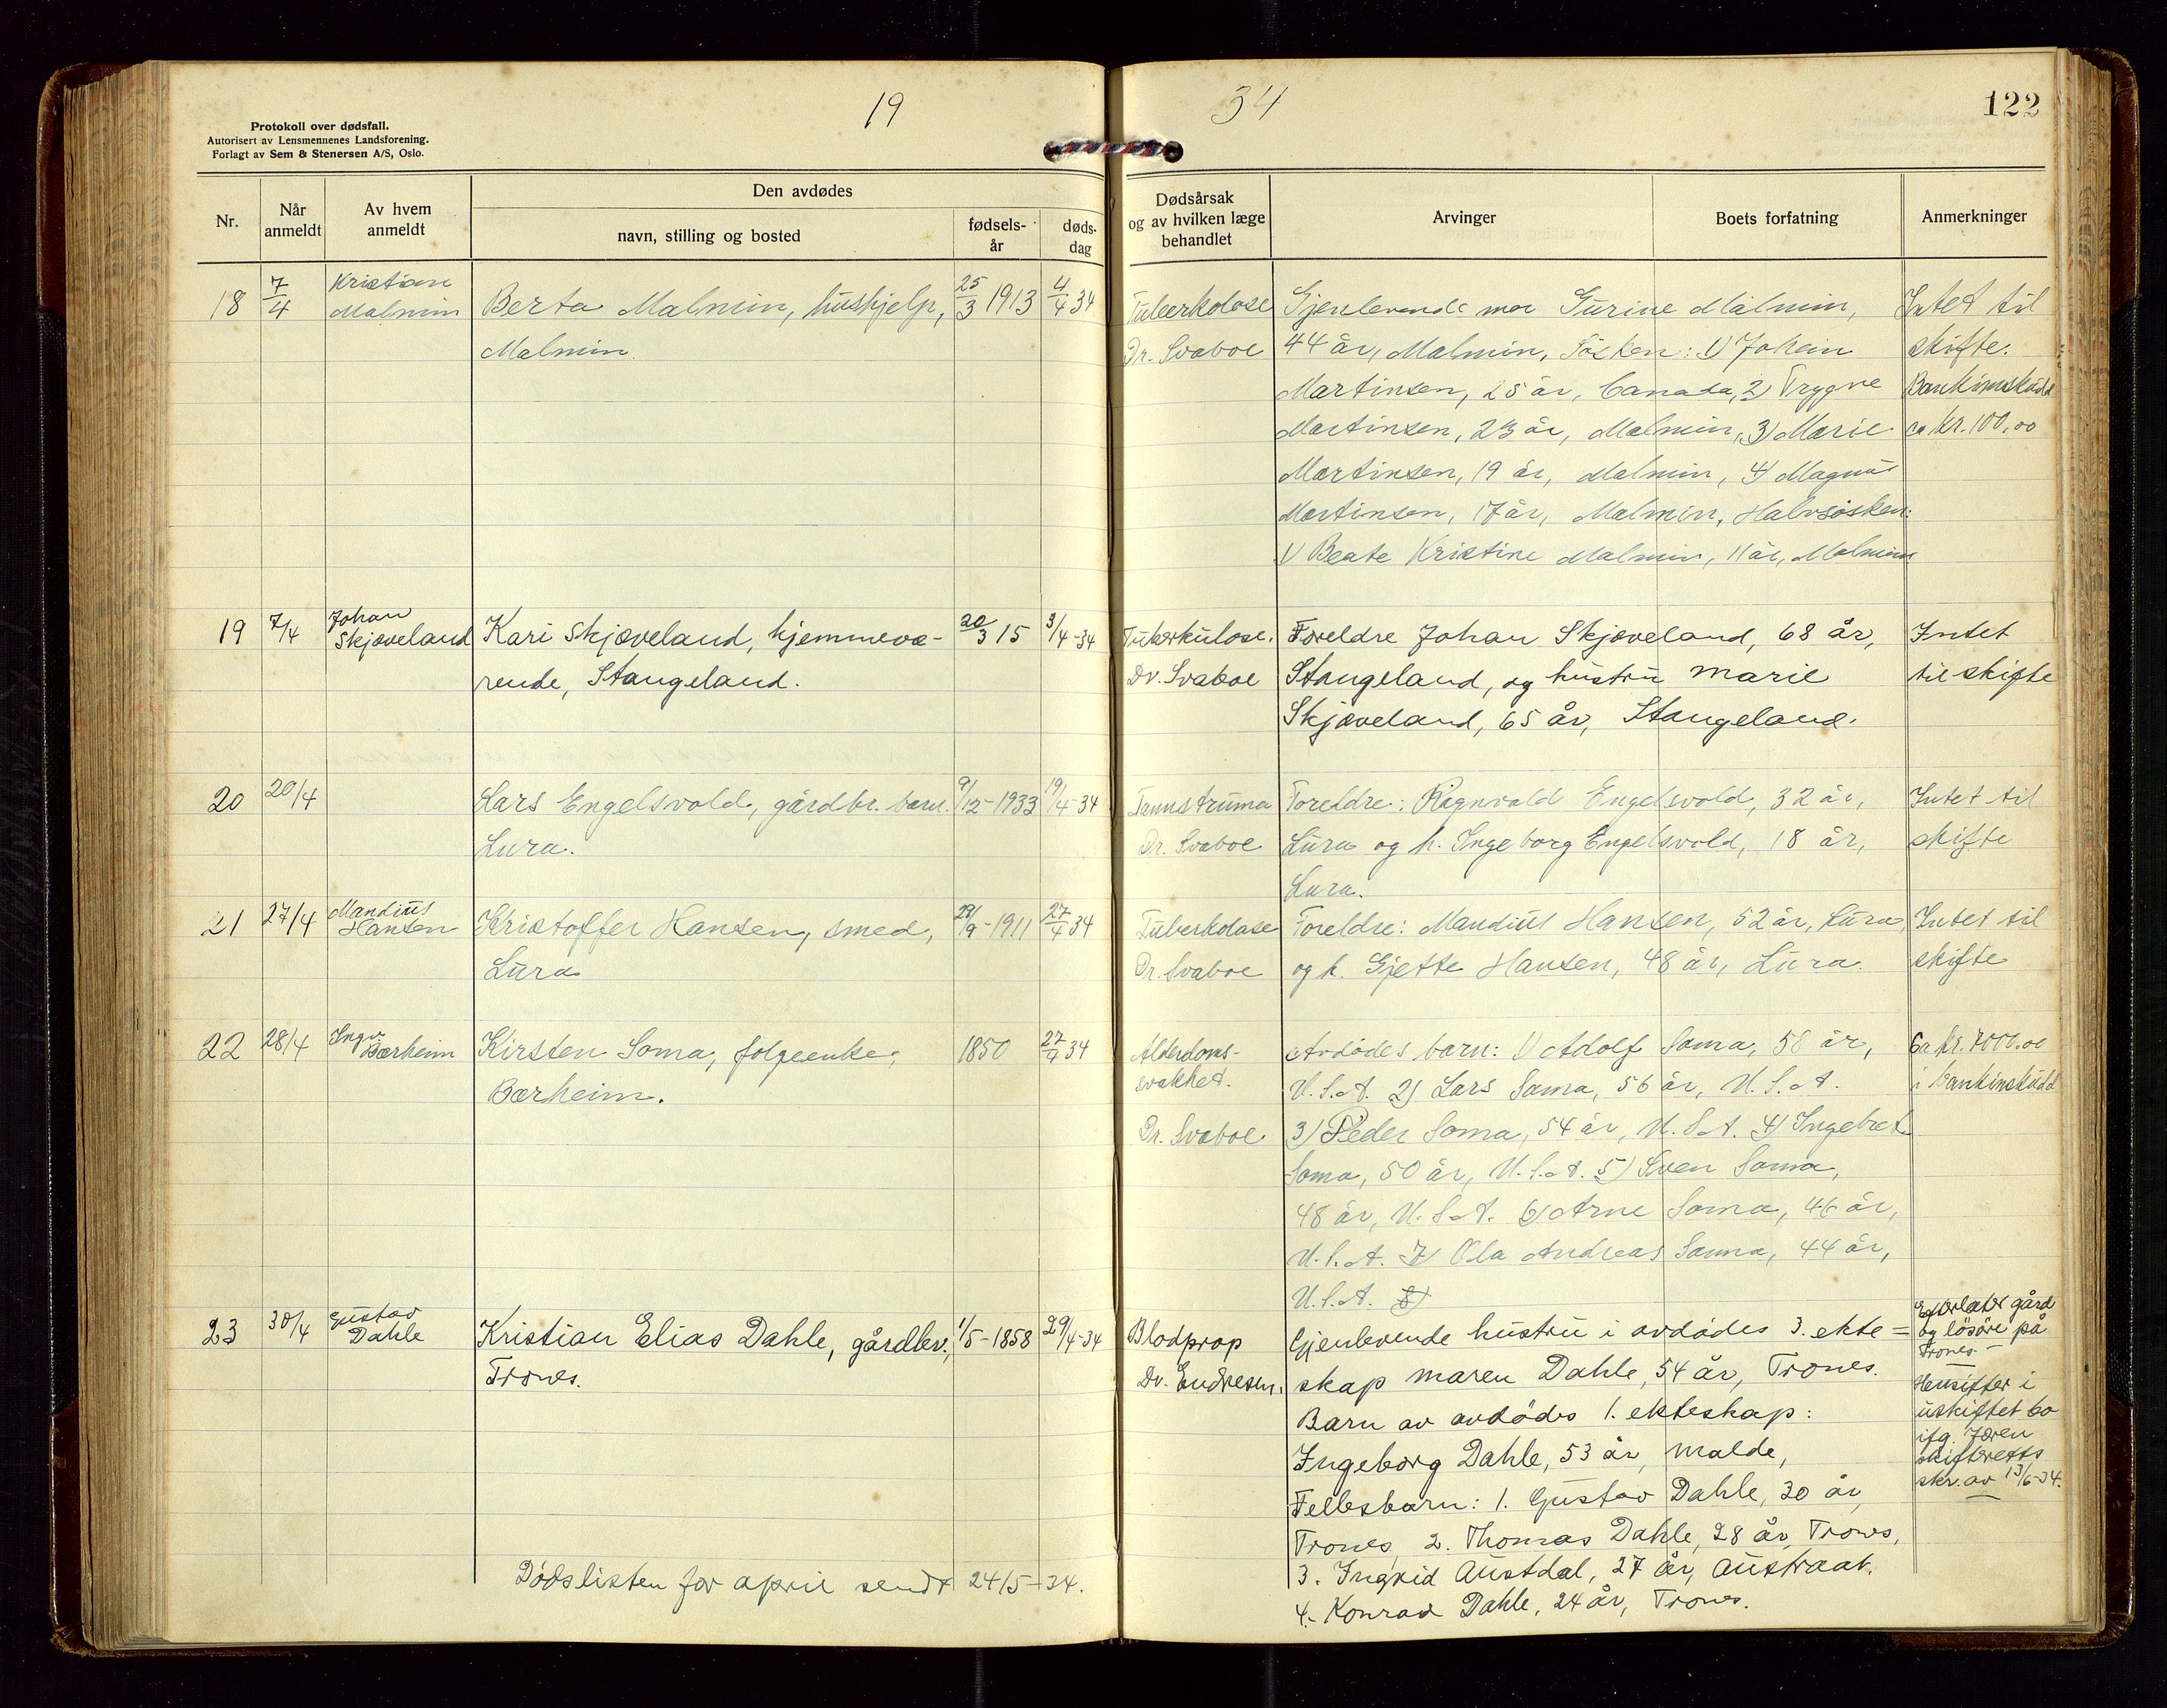 19 34
122
Protokoll over dødsfall.
Autorisert av Lensmennenes Landsforening.
Forlagt av Sem & Stenersen A/S, Oslo.
Nr.
Når
anmeldt
Av hvem
anmeldt
Den avdødes
navn, stilling og bosted
fødsels-
år
døds-
dag
Dødsårsak
og av hvilken læge
behandlet
Arvinger
Boets forfatning
Anmerkninger
18
7/4
Kristian
Malmin
Berta Malmin, hushjelp,
Malmin
25/3 1913
4/4 34
Tuberkolose
Dr. Svaboe
Gjenlevende mor Turine Malmin,
44 år, Malmin, Søsken: 1)
Martinsen, 25 år, Canada, 2) Trygve
Martinsen, 23 år, Malmin, 3) Marie
Martinsen, 19 år, Malmin, 4) Magnus
Martinsen, 17 år, Malmin, Halvsøsken:
1) Beate Kristine Malmin, 11 år, Malmin
Intet til
skifte.
Bankinskudd
ca kr. 100,00
19
7/4
Johan
Skjæveland
Kari Skjæveland, hjemmevæ-
rende, Stangeland.
20/3 15
3/4-34
Tuberkulose.
Dr. Svaboe
Foreldre Johan Skjæveland, 68 år,
Stangeland, og hustru Marie
Skjæveland, 65 år, Stangeland.
Intet
til skifte
20
20/4
Lars Engelsvold, gårdbr. barn.
Lura.
9/12-1933
19/4-34
Dr. Svaboe
Foreldre: Ragnvald Engelsvold, 32 år,
Lura og h. Ingeborg Engelsvold, 18 år,
Lura.
Intet til
skifte
21
27/4
Mandius
Hansen
Kristoffer Hansen, smed,
Lura
29/9-1911
27/4 34
Tuberkolose
Dr. Svaboe
Foreldre: Mandius Hansen, 52 år, Lura,
og h. Gjette Hansen, 48 år, Lura.
Intet til
skifte
22
28/4
Ingv.
Bærheim
Kirsten Soma, folgeenke,
Bærheim.
1850
27/4 34
Alderdoms-
svakhet.
Dr. Svaboe
Avdødes barn: 1) Adolf Soma, 58 år,
U.S.A. 2) Lars Soma, 56 år, U.S.A.
3) Peder Soma, 54 år, U.S.A. 4) Ingebret
Soma, 50 år, U.S.A. 5) Sven Soma,
48 år, U.S.A. 6) Arne Soma, 46 år,
U.S.A. 7) Ola Andreas Soma, 44 år,
U.S.A. 8)
Ca kr. 7000.00
i bankinskudd
23
30/4
Gustav
Dahle
Kristian Elias Dahle, gårdbr.,
Trones.
1/5-1858
29/4-34
Blodprop
Dr. Endresen.
Gjenlevende hustru i avdødes 3. ekte=
skap Maren Dahle, 54 år, Trones.
Barn av avdødes 1. ekteskap:
Ingeborg Dahle, 53 år, Malde,
Fellesbarn: 1. Gustav Dahle, 30 år,
Trones, 2. Thomas Dahle, 28 år, Trones,
3. Ingrid Austdal, 27 år, Austraat.
4. Konrad Dahle, 24 år, Trones.
Efterlater gård
og løsøre på
Trones.-
Hensitter i
uskiftet bo
ifg. Jæren
skifteretts
skr. av 13/6-34.
Dødslisten for april sendt 24/5-34.